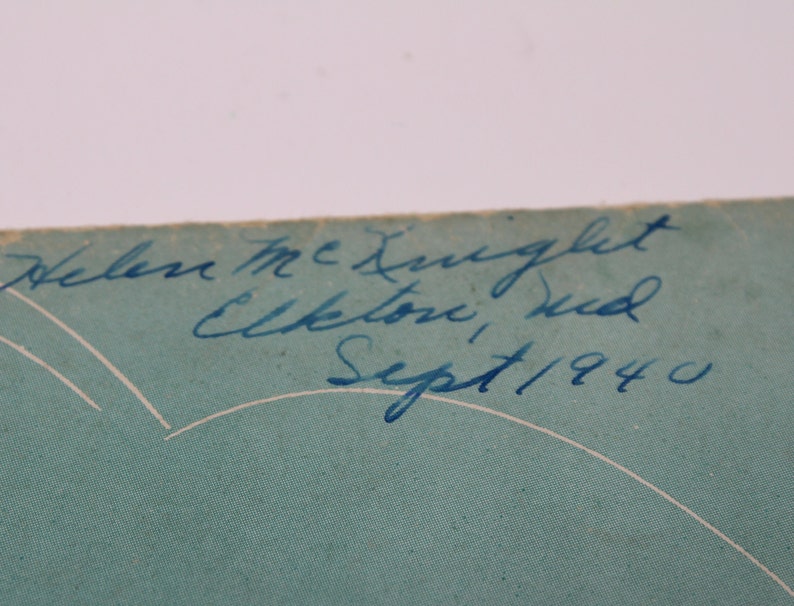 Helen McKnight
Elkton, Md
Sept 1940